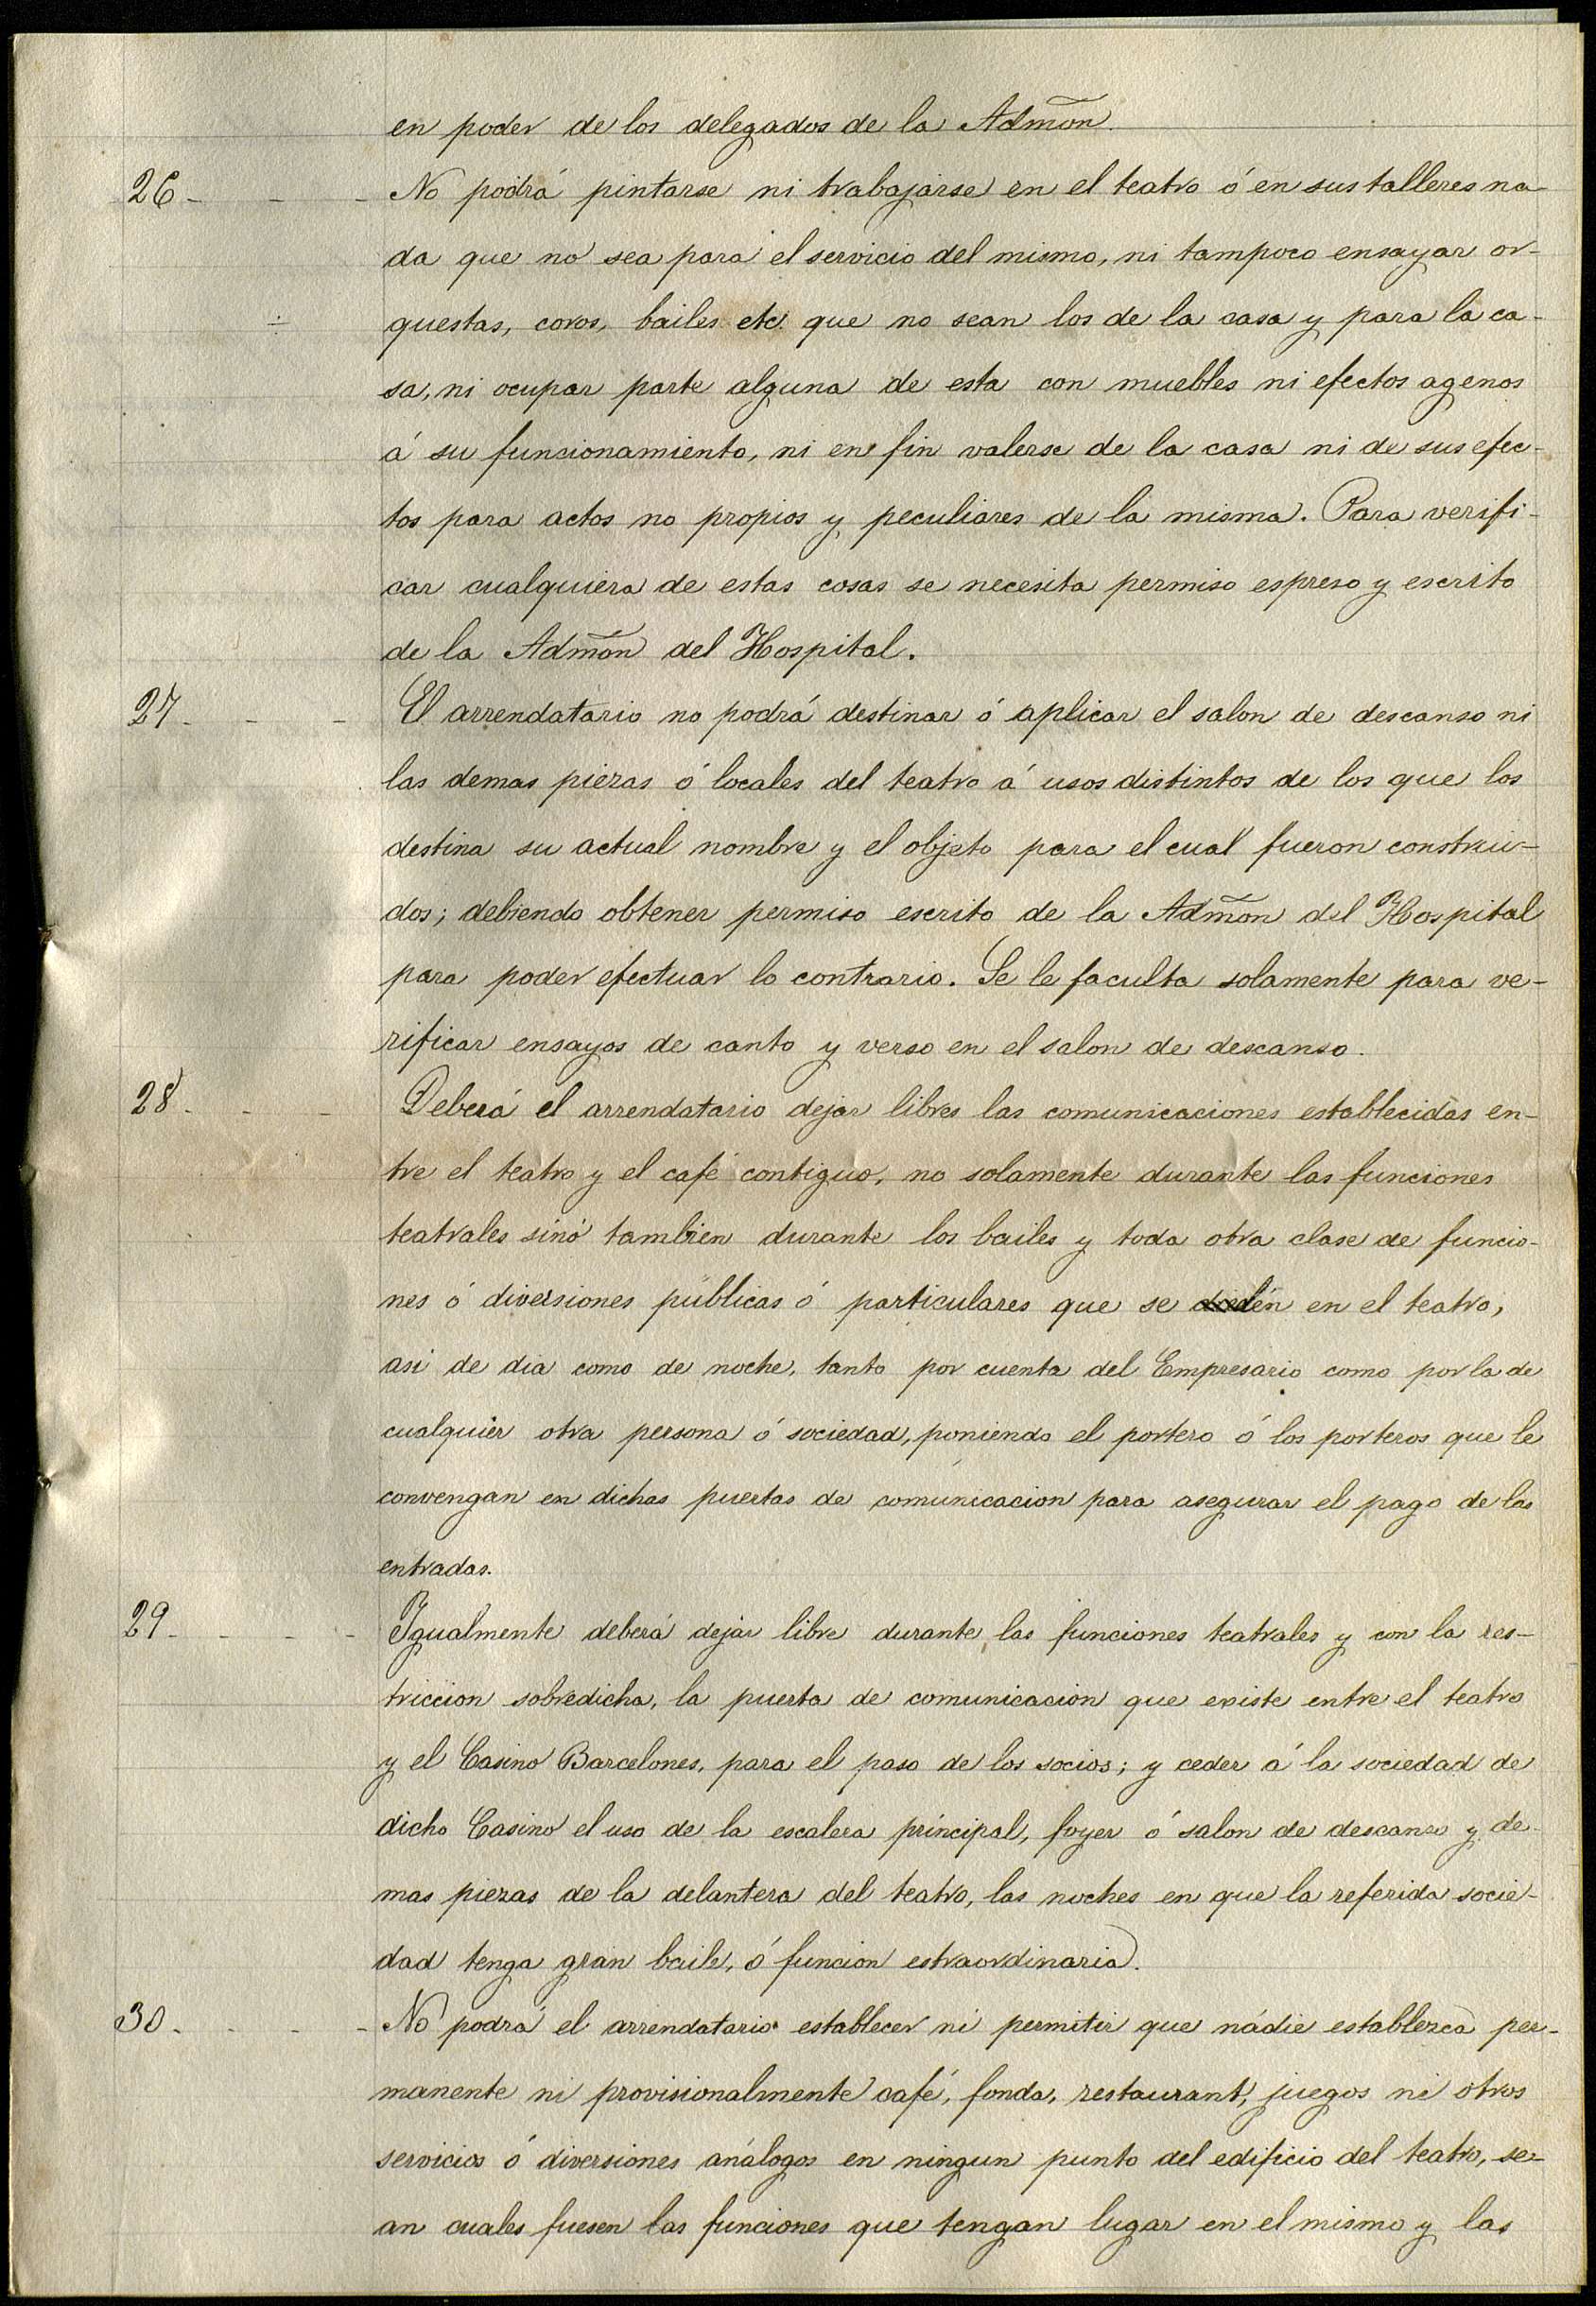 en poder de los delegados de la Admõn.
26 - - - No podrá pintarse ni trabajarse en el teatro ó en sus talleres na-
da que no sea para el servicio del mismo, ni tampoco ensayar or-
questas, coros, bailes etc. que no sean los de la casa y para la ca-
sa, ni ocupar parte alguna de esta con muebles ni efectos agenos
á su funcionamiento, ni en fin valerse de la casa ni de sus efec-
tos para actos no propios y peculiares de la misma. Para verifi-
car cualquiera de estas cosas se necesita permiso espreso y escrito
de la Admõn del Hospital.
27 - - - El arrendatario no podrá destinar ó aplicar el salon de descanso ni
las demas piezas ó locales del teatro á usos distintos de los que los
destina su actual nombre y el objeto para el cual fueron construi-
dos; debiendo obtener permiso escrito de la Admõn del Hospital
para poder efectuar lo contrario. Se le faculta solamente para ve-
rificar ensayos de canto y verso en el salon de descanso.
28 - - - Deberá el arrendatario dejar libres las comunicaciones establecidas en-
tre el teatro y el café contiguo, no solamente durante las funciones
teatrales sinó tambien durante los bailes y toda otra clase de funcio-
nes ó diversiones públicas ó particulares que se dén en el teatro,
asi de dia como de noche, tanto por cuenta del Empresario como por la de
cualquier otra persona ó sociedad, poniendo el portero ó los porteros que le
convengan en dichas puertas de comunicacion para asegurar el pago de las
entradas.
29 - - - - Igualmente deberá dejar libre durante las funciones teatrales y con la res-
triccion sobredicha, la puerta de comunicacion que existe entre el teatro
y el Casino Barcelones, para el paso de los socios; y ceder á la sociedad de
dicho Casino el uso de la escalera principal, foyer ó salon de descanso y de-
mas piezas de la delantera del teatro, las noches en que la referida socie-
dad tenga gran baile, ó funcion estraordinaria.
30 - - - - No podrá el arrendatario establecer ni permitir que nádie establezca per-
manente ni provisionalmente café, fonda, restaurant, juegos ni otros
servicios ó diversiones análogos en ningun punto del edificio del teatro, se-
an cuales fuesen las funciones que tengan lugar en el mismo y las